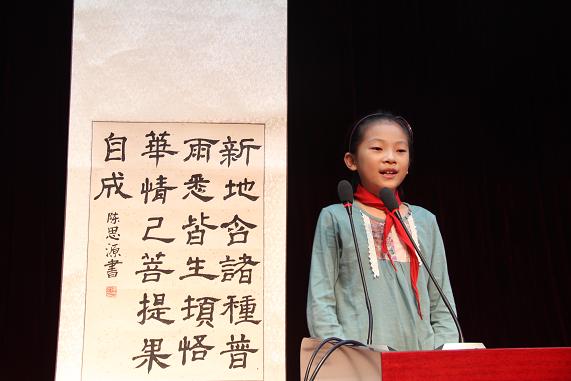 新地含諸種普
雨悉皆生頓悟
華情己菩提果
自成
陈思源書